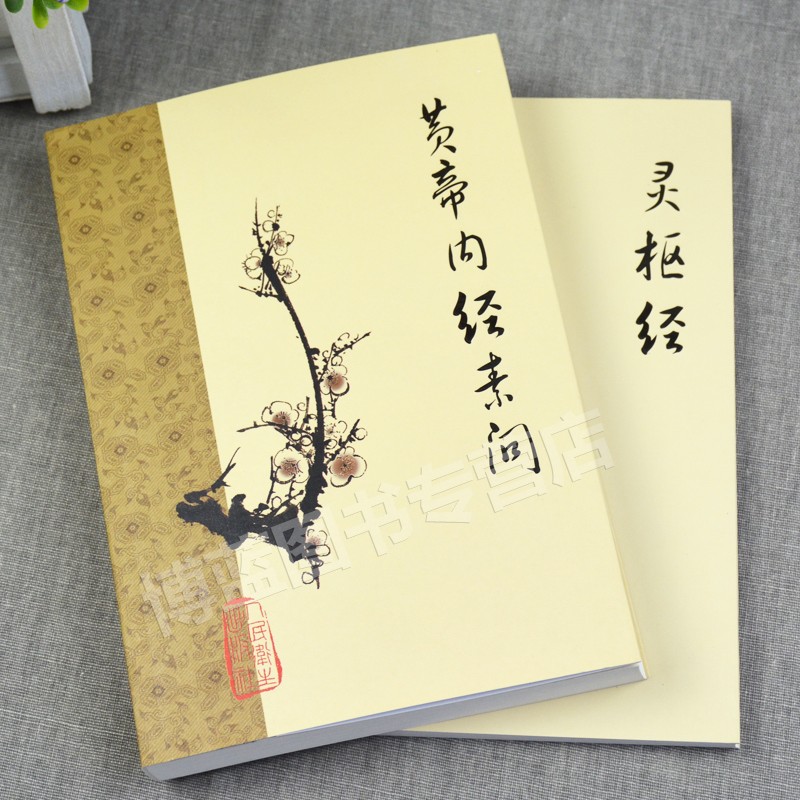 黄帝内经素问
灵枢经
博蓝图书专营店
人民卫生
出版社